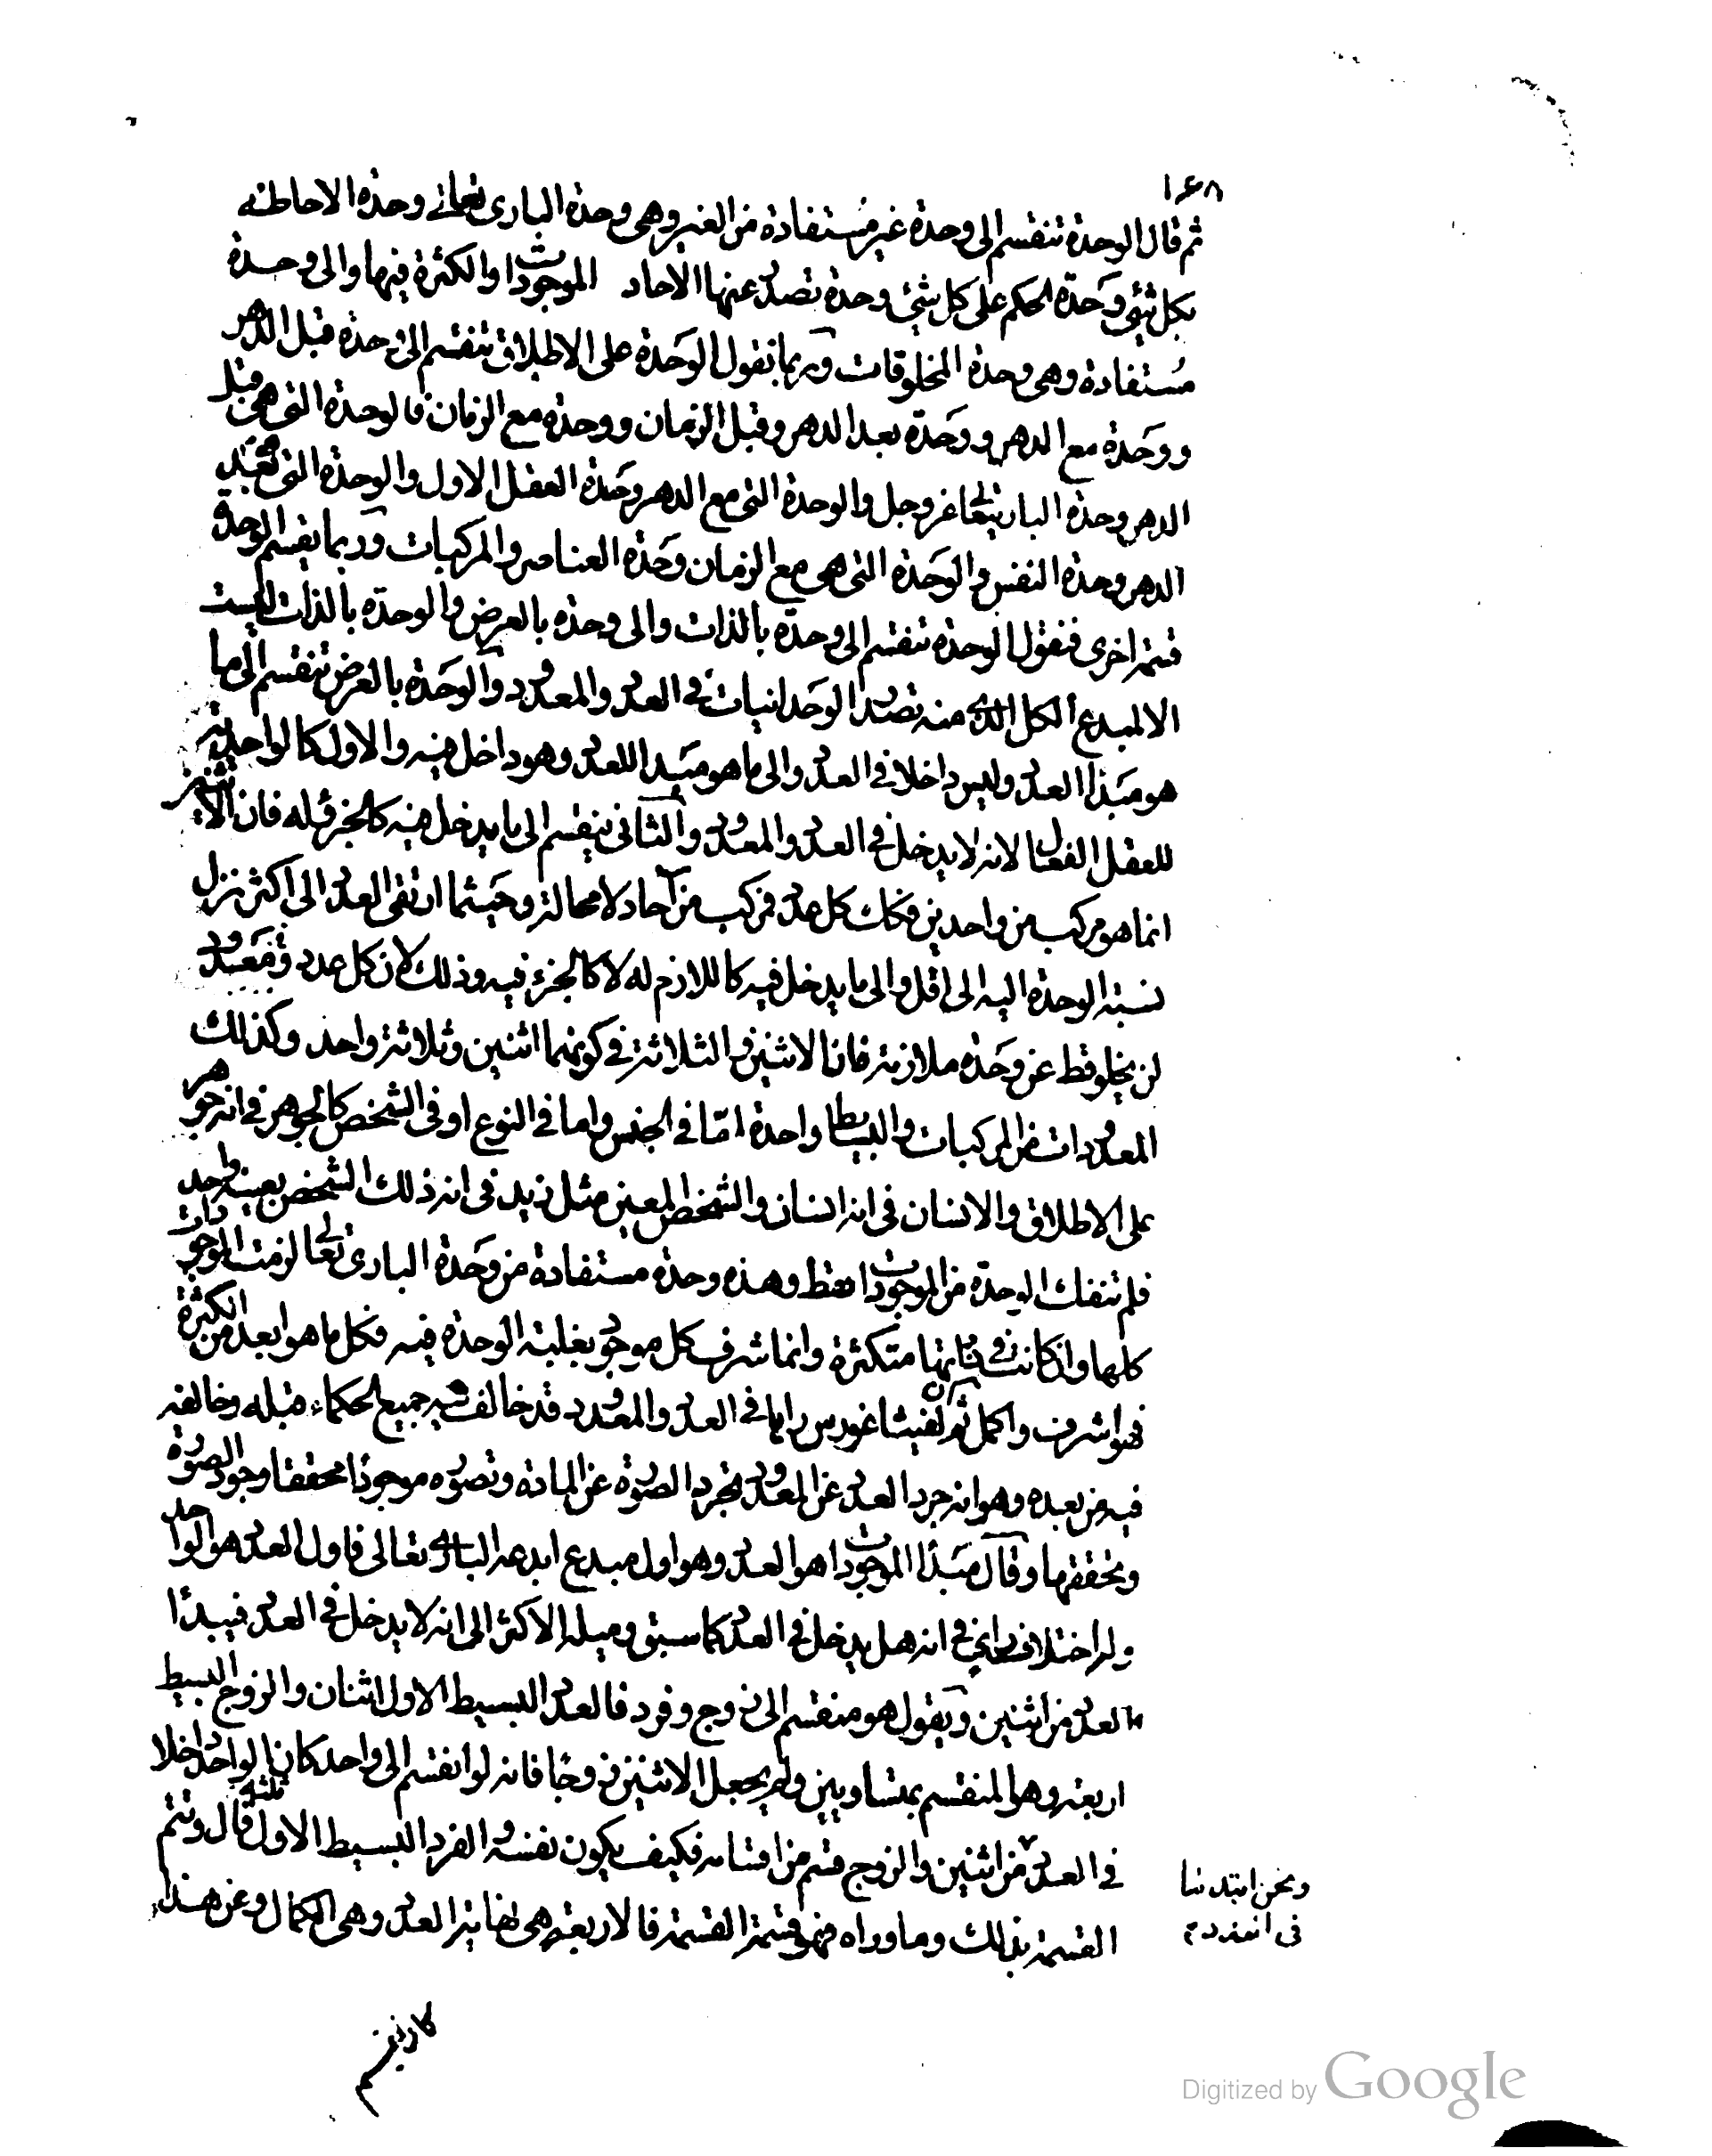 ١٦٨
ثم قال الوحدة تنقسم الى وحدة غير مستفادة من الغير وهى وحدة البارى تعالى وحدة الاحاطة
بكل شئ وحدة الحكم على كل شئ وحدة تصدر عنها الاحاد الموجودات والكثرة فيها والى وحدة
مستفادة وهى وحدة المخلوقات وربما نقول الوحدة على الاطلاق تنقسم الى وحدة قبل الدهر
ووحدة مع الدهر ووحدة بعد الدهر وقبل الزمان ووحدة مع الزمان فالوحدة التى هى قبل
الدهر وحدة البارى تعالى عز وجل والوحدة التى مع الدهر وحدة العقل الاول والوحدة التى هى بعد
الدهر وحدة النفس والوحدة التى هى مع الزمان وحدة العناصر والمركبات وربما يقسم الوحدة
قسمة اخرى فنقول الوحدة تنقسم الى وحدة بالذات والى وحدة بالعرض والوحدة بالذات ليست
الا لمبدع الكل الذى منه تصدر الوحدانيات فى العدد والمعدود والوحدة بالعرض تنقسم الى ما
هو مبدا العدد وليس داخلا فى العدد والى ما هو مبدا للعدد وهو داخل فيه والاول كالواحدية
للعقل الفعال لانه لا يدخل فى العدد والمعدود والثانى ينقسم الى ما يدخل فيه كالجزء له فان الاثنين
انما هو مركب من واحدين وكذلك كل عدد فمركب من آحاد لا محالة وحيثما ارتقى العدد الى اكثر نزل
نسبة الوحدة اليه الى اقل والى ما يدخل فيه كاللازم له لا كالجزء فيه وذلك لان كل عدد ومعدود
لن يخلو قط عن وحدة ملازمة فان الاثنين والثلاثة فى كونهما اثنين وثلاثة واحد وكذلك
المعدودات من المركبات والبسايط واحدة اما فى الجنس واما فى النوع او فى الشخص كالجوهر فى انه جوهر
على الاطلاق والانسان فى انه انسان والشخص المعين مثل زيد فى انه ذلك الشخص بعينه واحد
فلم تنفك الوحدة من الموجودات قط وهذه وحدة مستفادة من وحدة البارى تعالى لزمت الموجودات
كلها وان كانت فى ذواتها متكثرة وانما شرف كل موجود بغلبة الوحدة فيه فكل ما هو ابعد من الكثرة
فهو اشرف واكمل ثم ان لفيثاغورس رايا فى العدد والمعدود قد خالف فيه جميع الحكماء قبله وخالفه
فيه من بعده وهو انه جرد العدد عن المعدود تجريد الصورة عن المادة وتصوره موجودا محققا وجود الصورة
وتحققها وقال مبدا الموجودات هو العدد وهو اول مبدع ابدعه البارى تعالى فاول العدد هو الواحد
وله اختلاف راى فى انه هل يدخل فى العدد كما سبق وميله الاكثر الى انه لا يدخل فى العدد فيبدئ
العدد من اثنين ويقول هو منقسم الى زوج وفرد فالعدد البسيط الاول اثنان والزوج البسيط
اربعة وهو المنقسم بمتساويين ولم يجعل الاثنين زوجا فانه لو انقسم الى واحد كان الواحد داخلا
فى العدد من اثنين والزوج قسم من اقسامه فكيف يكون نفسه والفرد البسيط الاول ثلثه قال وتتم
القسمة بذلك وما وراه فهو قسمة القسمة فالاربعة هى نهاية العدد وهى الكمال وعن هذا
ونحن ابتدئنا
فى العدد
كان يقسم